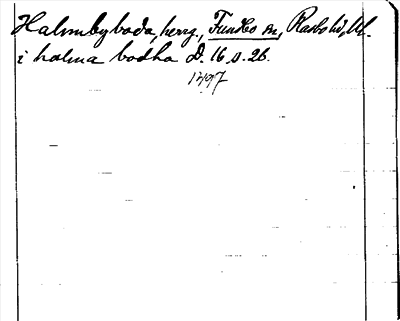 Halmbyboda, herrg., Funbo sn, Rasbo hd, Upl.
i halma bodha D. 16, s. 26.
1397